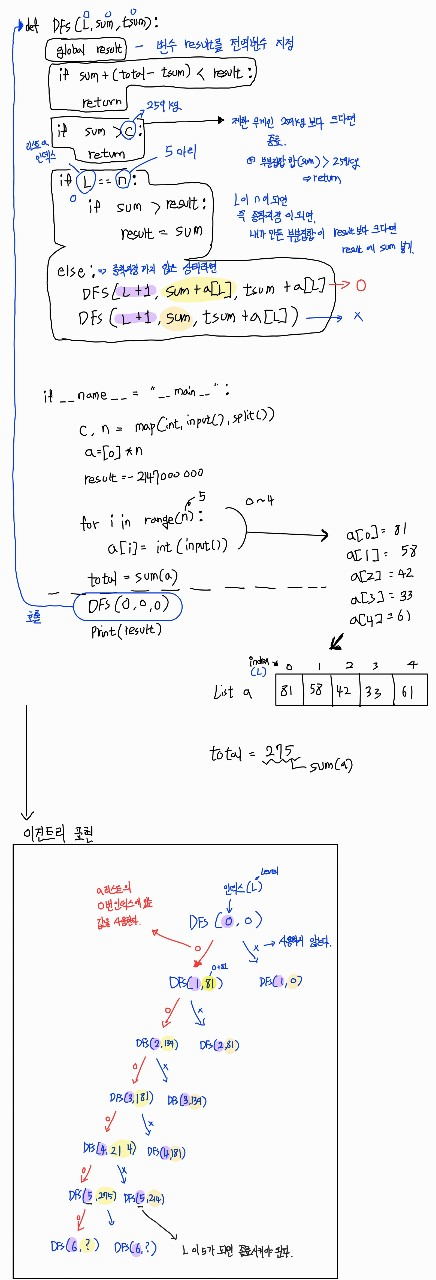 0 0 0
def DFS(L, sum, tsum):
global result - 변수 result를 전역변수 지정
if sum + (total - tsum) < result:
return
259kg
if sum > c: → 제한 무게인 259kg 보다 크다면
종료.
return
ex) 부분집합 합(sum) > 259kg
⇒ return
리스트 a
인덱스
5마리
if L == n:
0
if sum > result:
result = sum
L이 n이 되면
즉 종착지점이 되면,
내가 만든 부분집합이 result보다 크다면
result에 sum 넣기.
else: ⇒ 종착지점 까지 않은 상태라면
DFS(L+1, sum+a[L], tsum+a[L]) → O
DFS(L+1, sum, tsum+a[L]) → X
if __name__ = "__main__":
c, n = map(int, input(), split())
a=[0]*n
result=-2147000000
5
for i in range(n): 0~4
a[i]= int(input())
total = sum(a)
호출
DFS(0,0,0)
Print(result)
a[0]= 81
a[1]= 58
a[2]= 42
a[3]= 33
a[4]= 61
index 0 1 2 3 4
(L)
List a 81 58 42 33 61
total = 275
sum(a)
이진트리 표현
Level
인덱스(L)
a리스트의
0번 인덱스에 있는
값을 사용한다.
DFS (0, 0)
O X → 사용하지 않는다.
0+81
DFS(1, 81) DFS(1, 0)
O X
DFS(2, 139) DFS(2, 81)
O X
DFS(3, 181) DFS(3, 139)
O X
DFS(4, 214) DFS(4, 181)
O X
DFS(5, 275) DFS(5, 214)
O X
DFS(6, ?) DFS(6, ?)
L이 5가 되면 종료시켜야 된다.